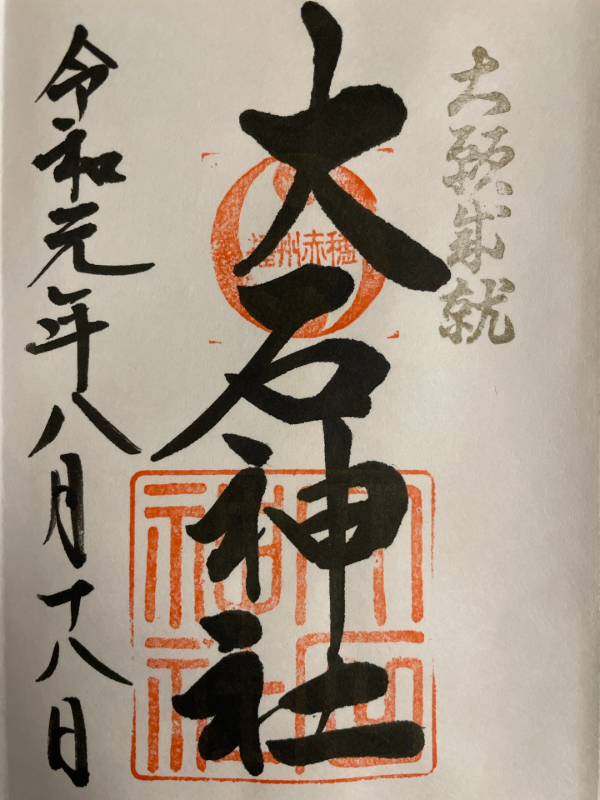 大願成就
播州赤穂
大石神社
大石神社
令和元年八月十八日